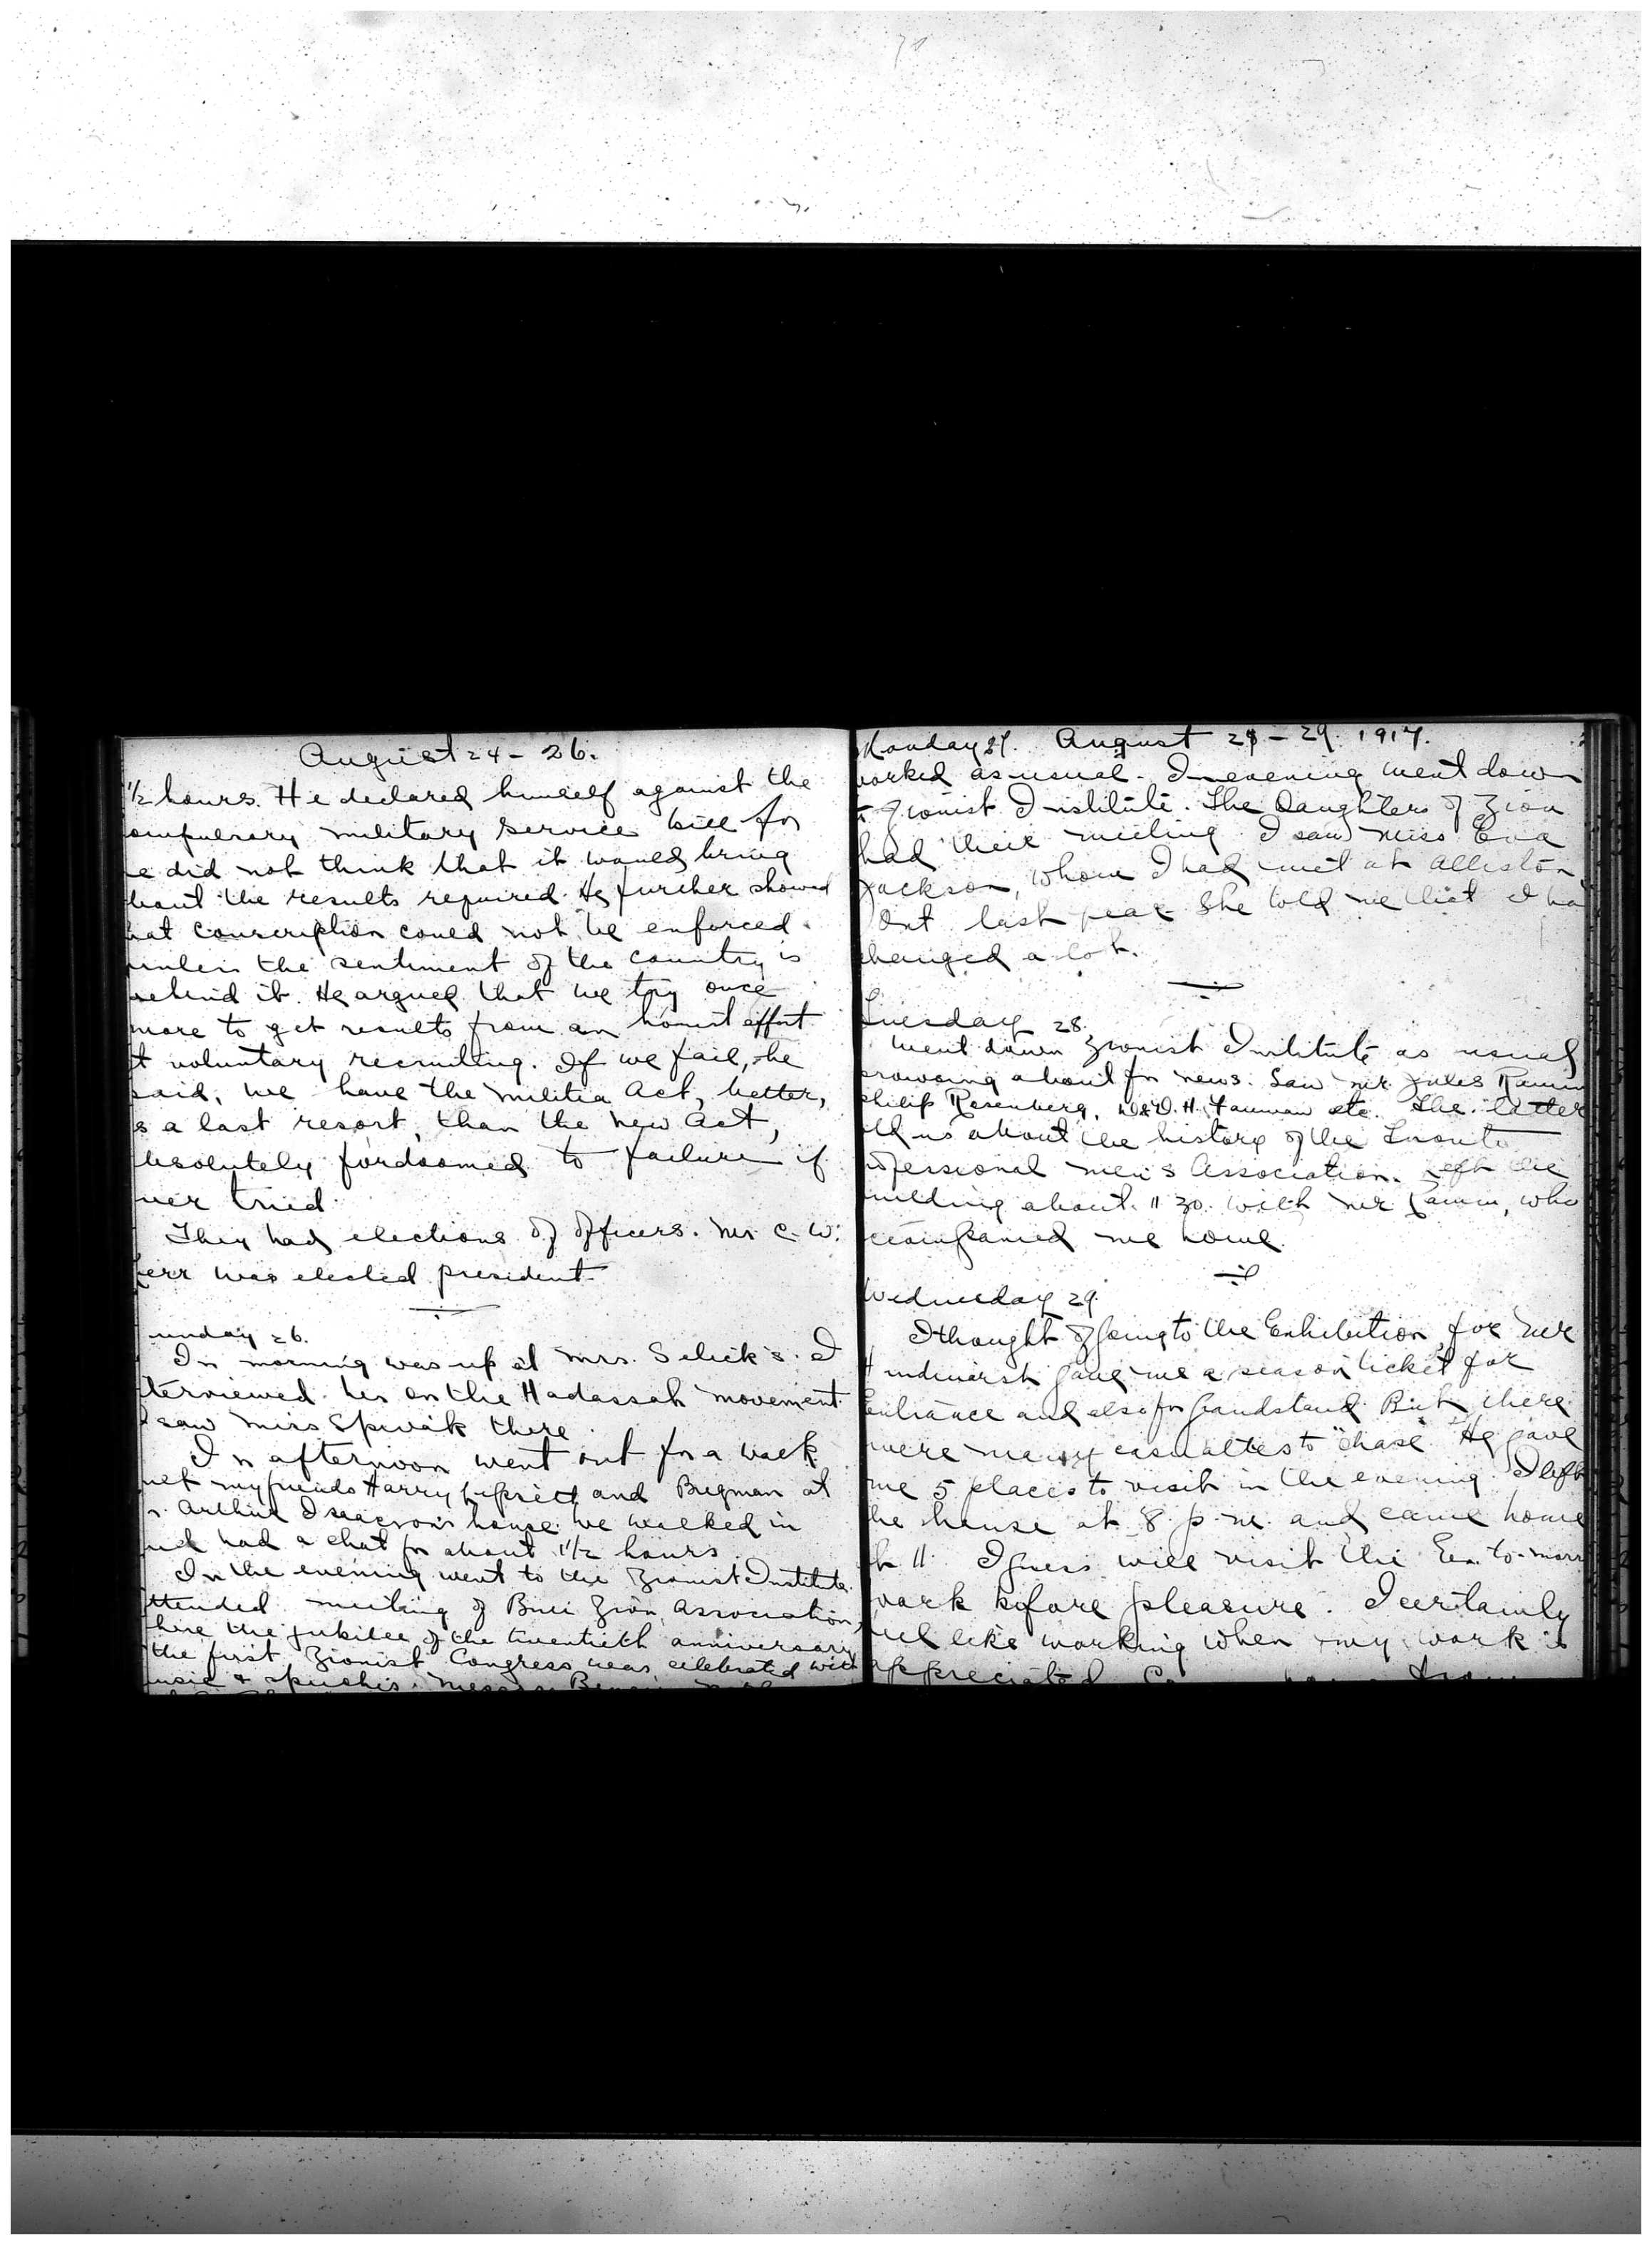 August 24 - 26.
1/2 hours. He declared himself against the
ompulsory military service bill for
e did not think that it would bring
bout the results required. He further showed
hat conscription could not be enforced
unless the sentiment of the country is
behind it. He argued that we try once
more to get results from an honest effort
t voluntary recruiting. If we fail, he
said, we have the Militia Act, better,
s a last resort, than the new act,
bsolutely fordoomed to failure if
ver tried.
They had elections of officers. Mr. C. W.
Kerr was elected president.
unday 26.
In morning was up at Mrs. Selick's. I
terviewed her on the Hadassah movement.
saw Miss Spivak there.
In afternoon went out for a walk
met my friends Harry and Bregman at
r. Arthur Isaacson's house. We walked in
nd had a chat for about 1 1/2 hours.
In the evening went to the Zionist Institute.
ttended meeting of Bnei Zion Association,
here the jubilee of the twentieth anniversary
the first Zionist Congress was celebrated with
usic & speeches. Messrs.
Monday 27. August 28 - 29. 1917.
worked as usual. In evening went down
to Zionist Institute. The Daughters of Zion
had their meeting. I saw Miss Eva
Jackson, whom I had met at Alliston
Ont last year. She told me that I had
changed a lot.
Tuesday 28.
Went down Zionist Institute as usual
prowling about for news. Saw Mr. Jules Ramm
Philip Rosenberg, H. etc. The latter
old us about the history of the Toronto
rofessional Men's Association. Left the
uilding about 11.30. with Mr Ramm, who
ccompanied me home.
Wednesday 29.
I thought of going to the Exhibition for Mr
gave me a season ticket for
Entrance and also for Grandstand. But there
were many casualties to "chase". He gave
me 5 places to visit in the evening. I left
the house at 8. p.m. and came home
at 11. I guess will visit the Ex. to-morr
work before pleasure. I certainly
eel like working when my work is
appreciated